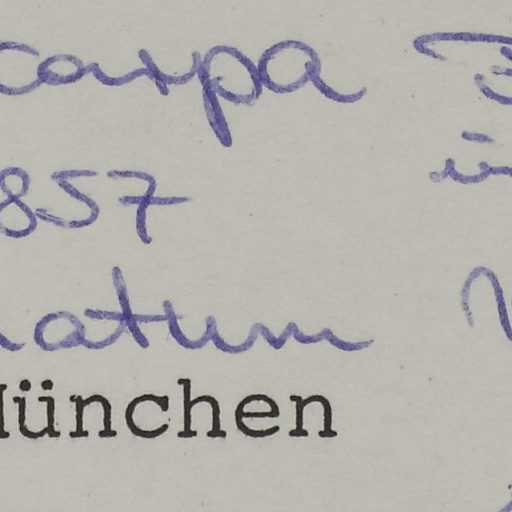 carpa
857
natum
München